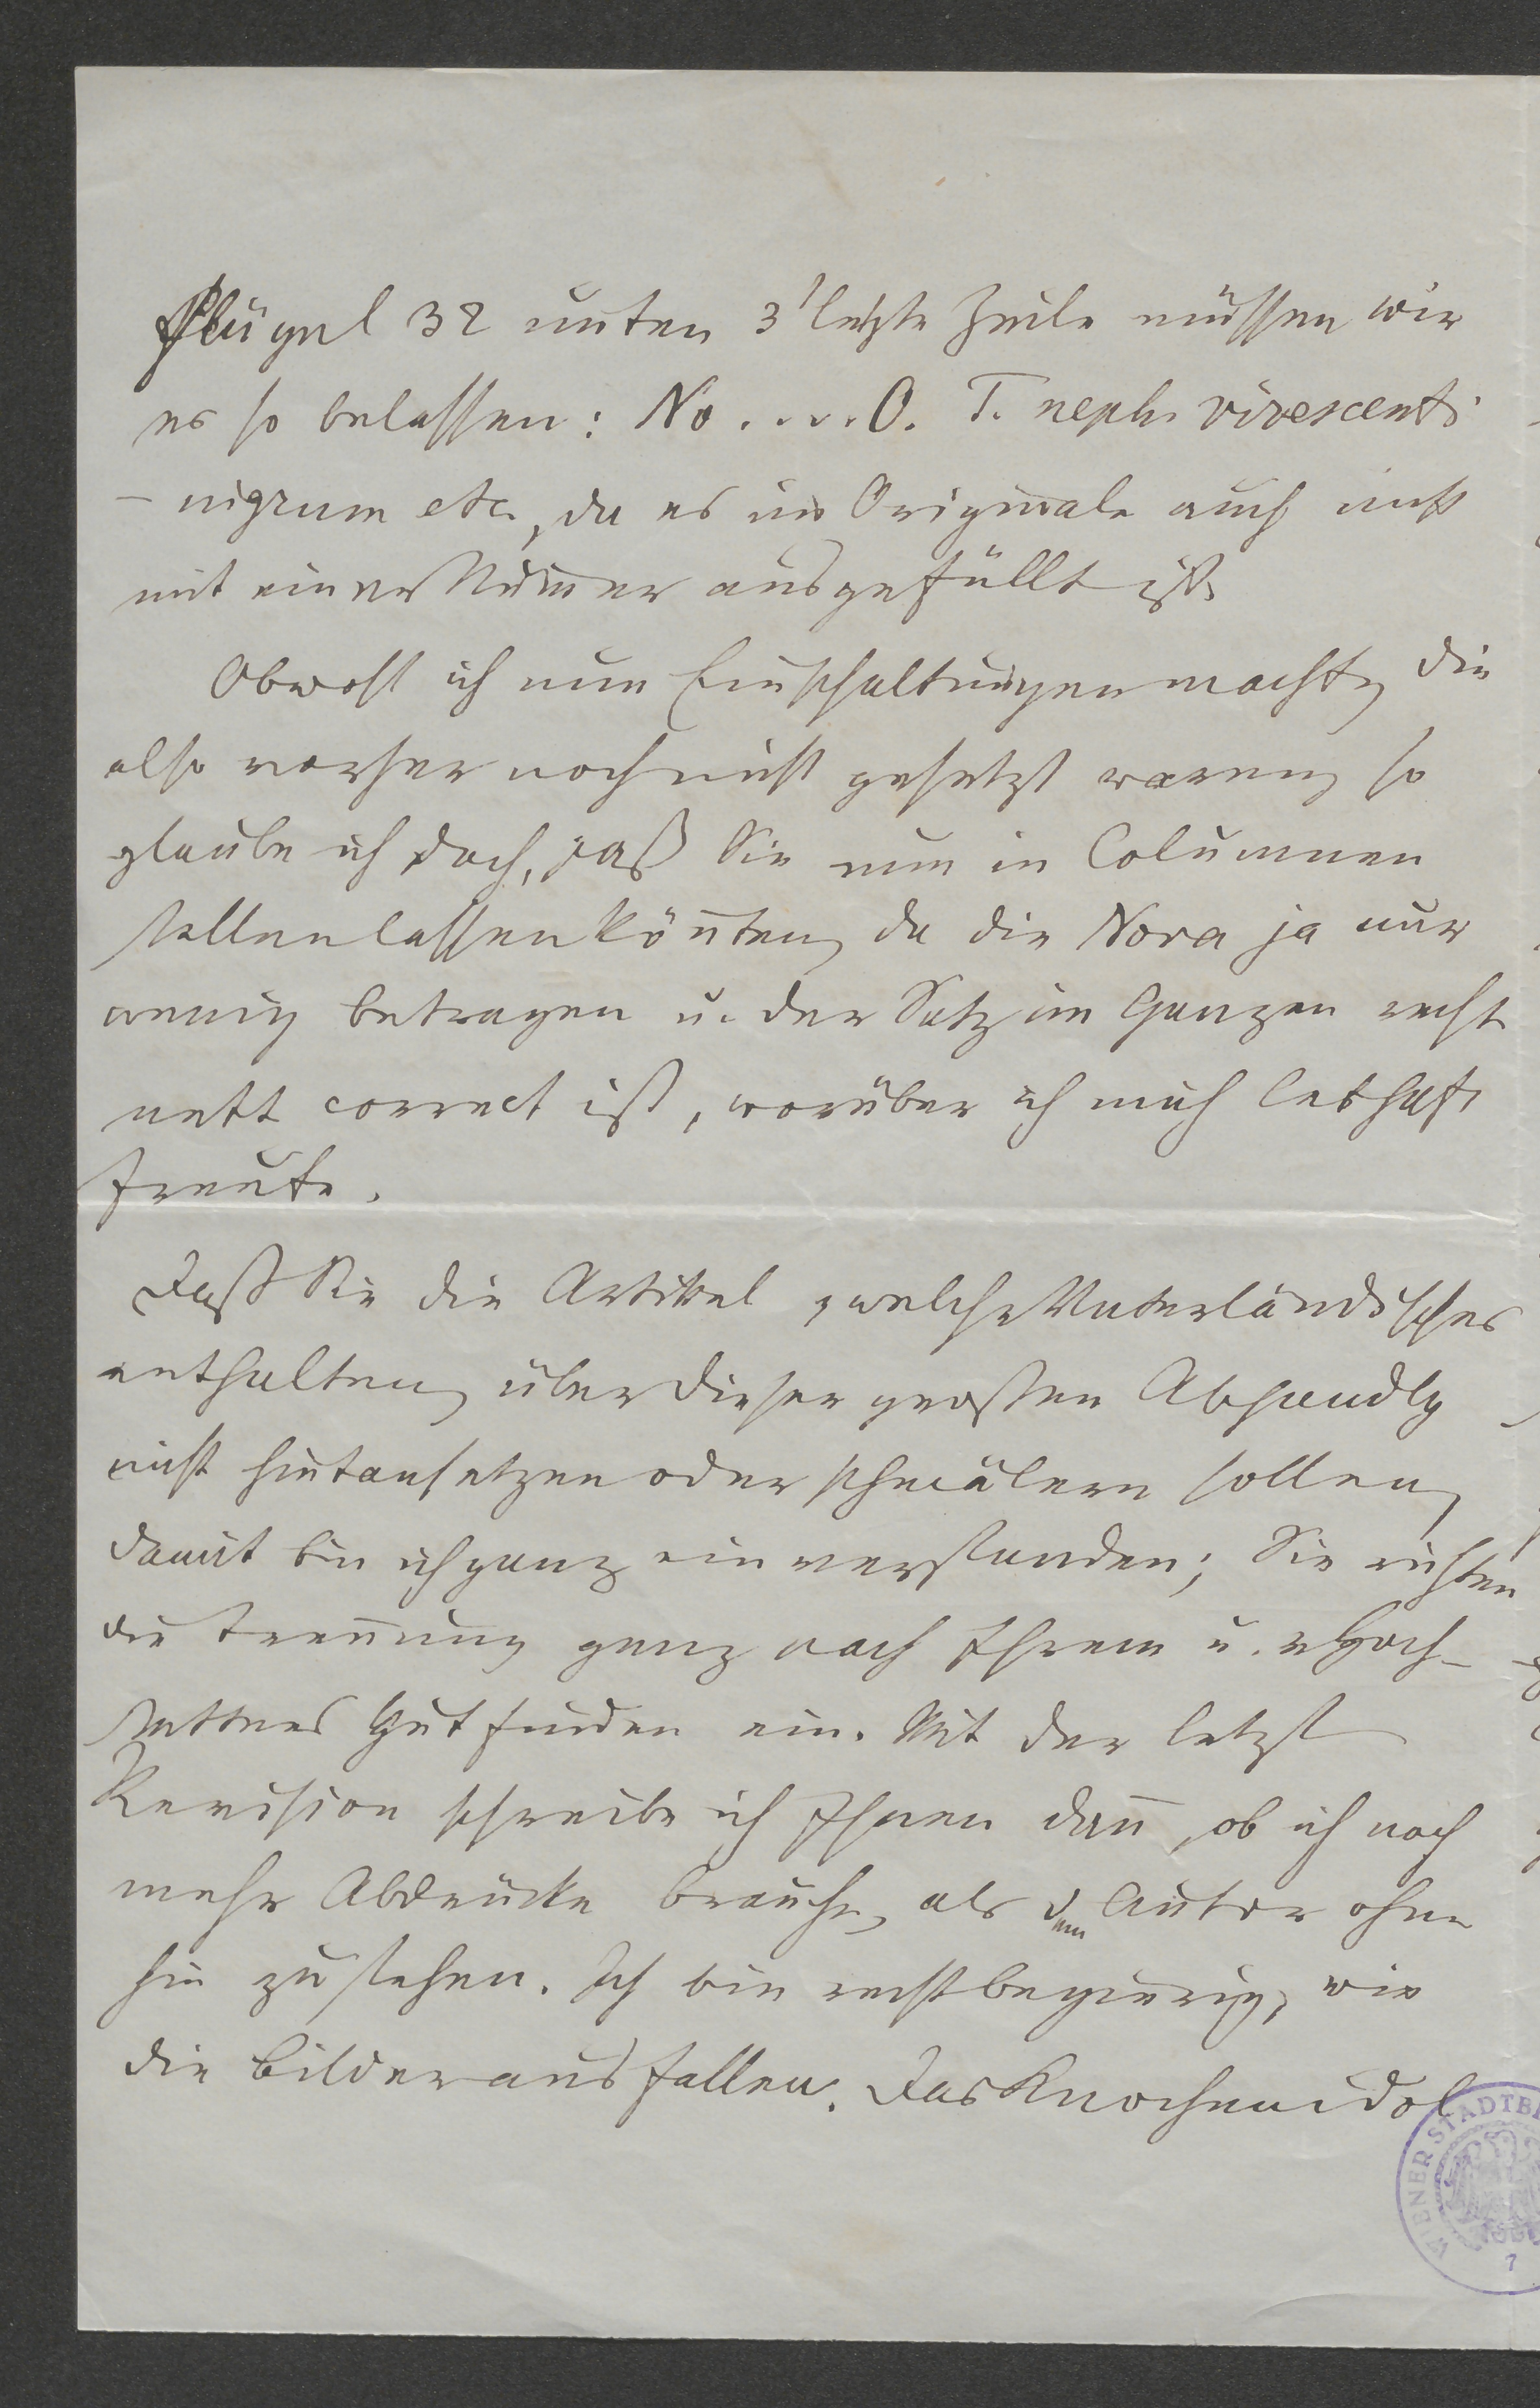 Flügel 32 unten 3' letzte Zeile müssen wir
es so belassen: No .... O. T. neph. virescenti
- nigrum etc., da es im Originale auch nicht
mit einer Nummer ausgefüllt ist.
Obwohl ich nun Einschaltungen machte, die
also vorher noch nicht gesetzt waren, so
glaube ich doch, daß Sie nun in Columnen
stellen lassen könnten, da die Nova ja nur
wenig betragen u. der Satz im Ganzen recht
nett correct ist, worüber ich mich lebhaft
freute.
Daß Sie die Artikel, welche Vaterländisches
enthalten, über dieser großen Abhandlg
nicht hintansetzen oder schmälern sollen,
damit bin ich ganz einverstanden; Sie richten
die Trennung ganz nach Ihrem u. v Hoch-
stettners Gutfinden ein. Mit der letzt
Revision schreibe ich Ihnen dann, ob ich noch
mehr Abdrücke brauche, als dem Autor ohne
hin zustehen. Ich bin recht begierig, wie
die Bilder ausfallen. Das Knochenidol
WIENER STADTBI
7